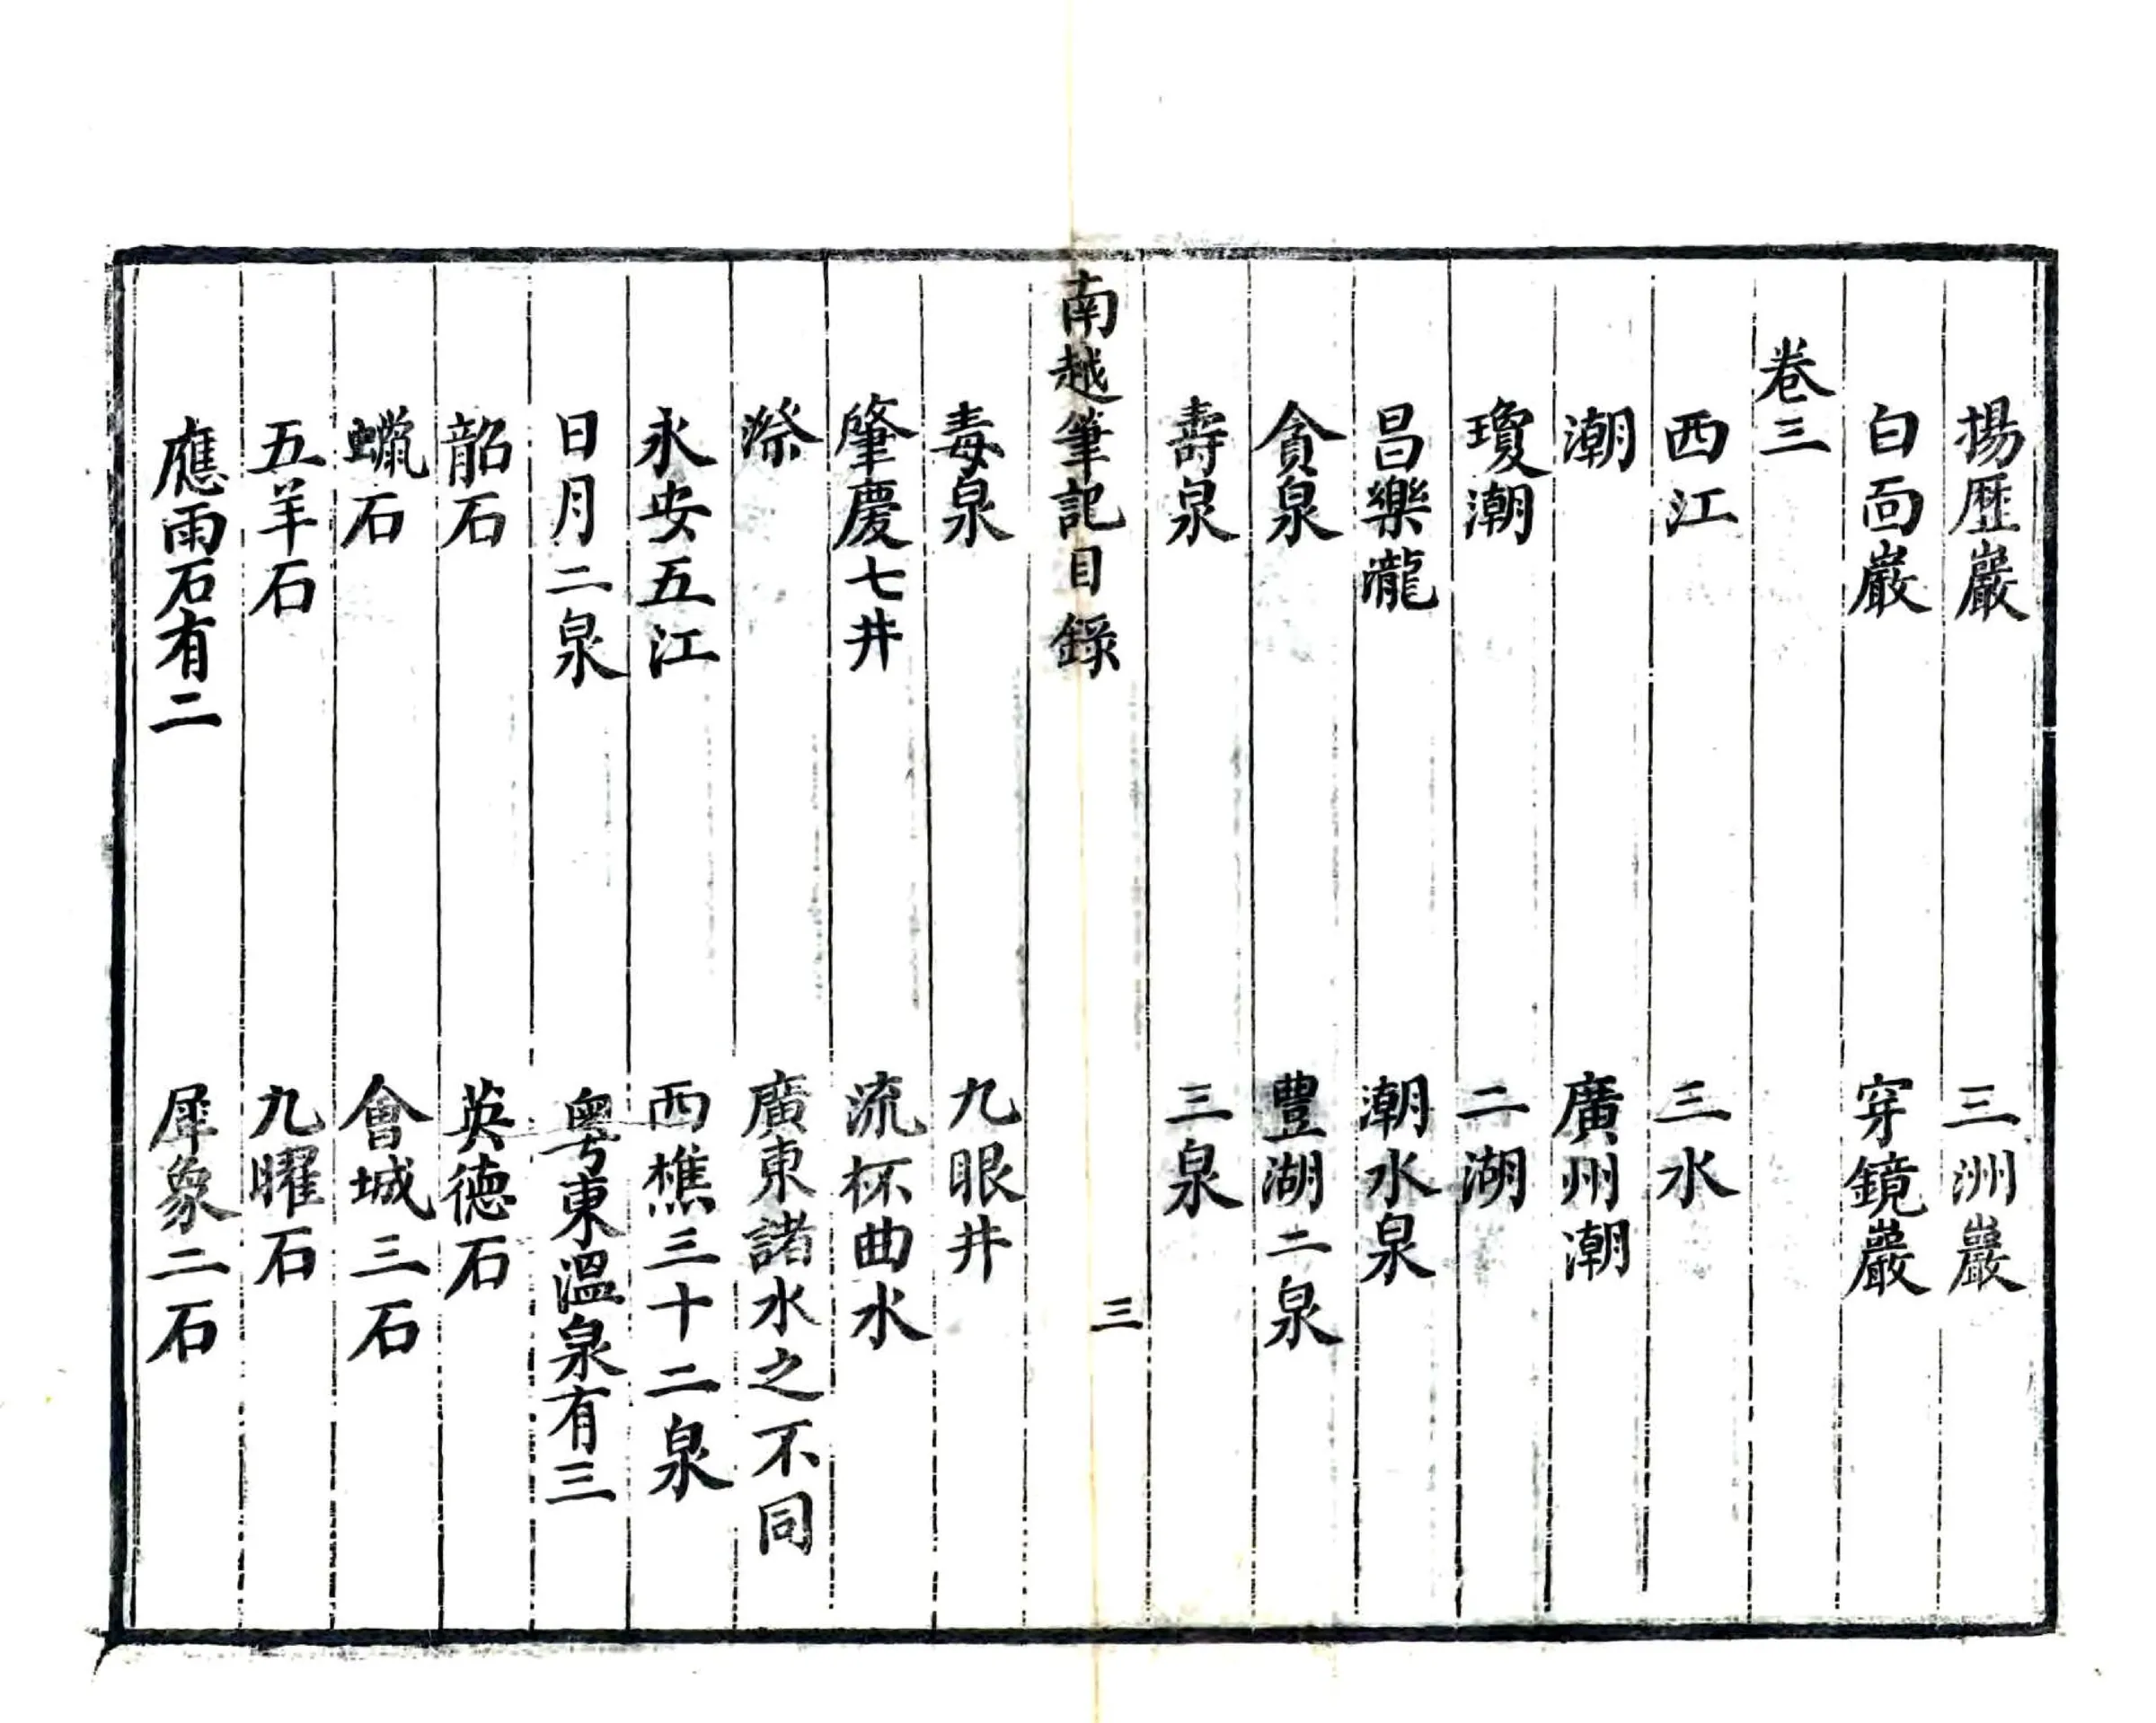 揚歴巖　三洲巖
白面巖　穿鏡巖
卷三
西江　三水
潮　廣州潮
瓊潮　二湖
昌樂瀧　潮水泉
貪泉　豊湖二泉
壽泉　三泉
南越筆記目錄　三
毒泉　九眼井
肇慶七井　流杯曲水
漈　廣東諸水之不同
永安五江　西樵三十二泉
日月二泉　粤東溫泉有三
韶石　英德石
蠟石　會城三石
五羊石　九曜石
應雨石有二　犀象二石